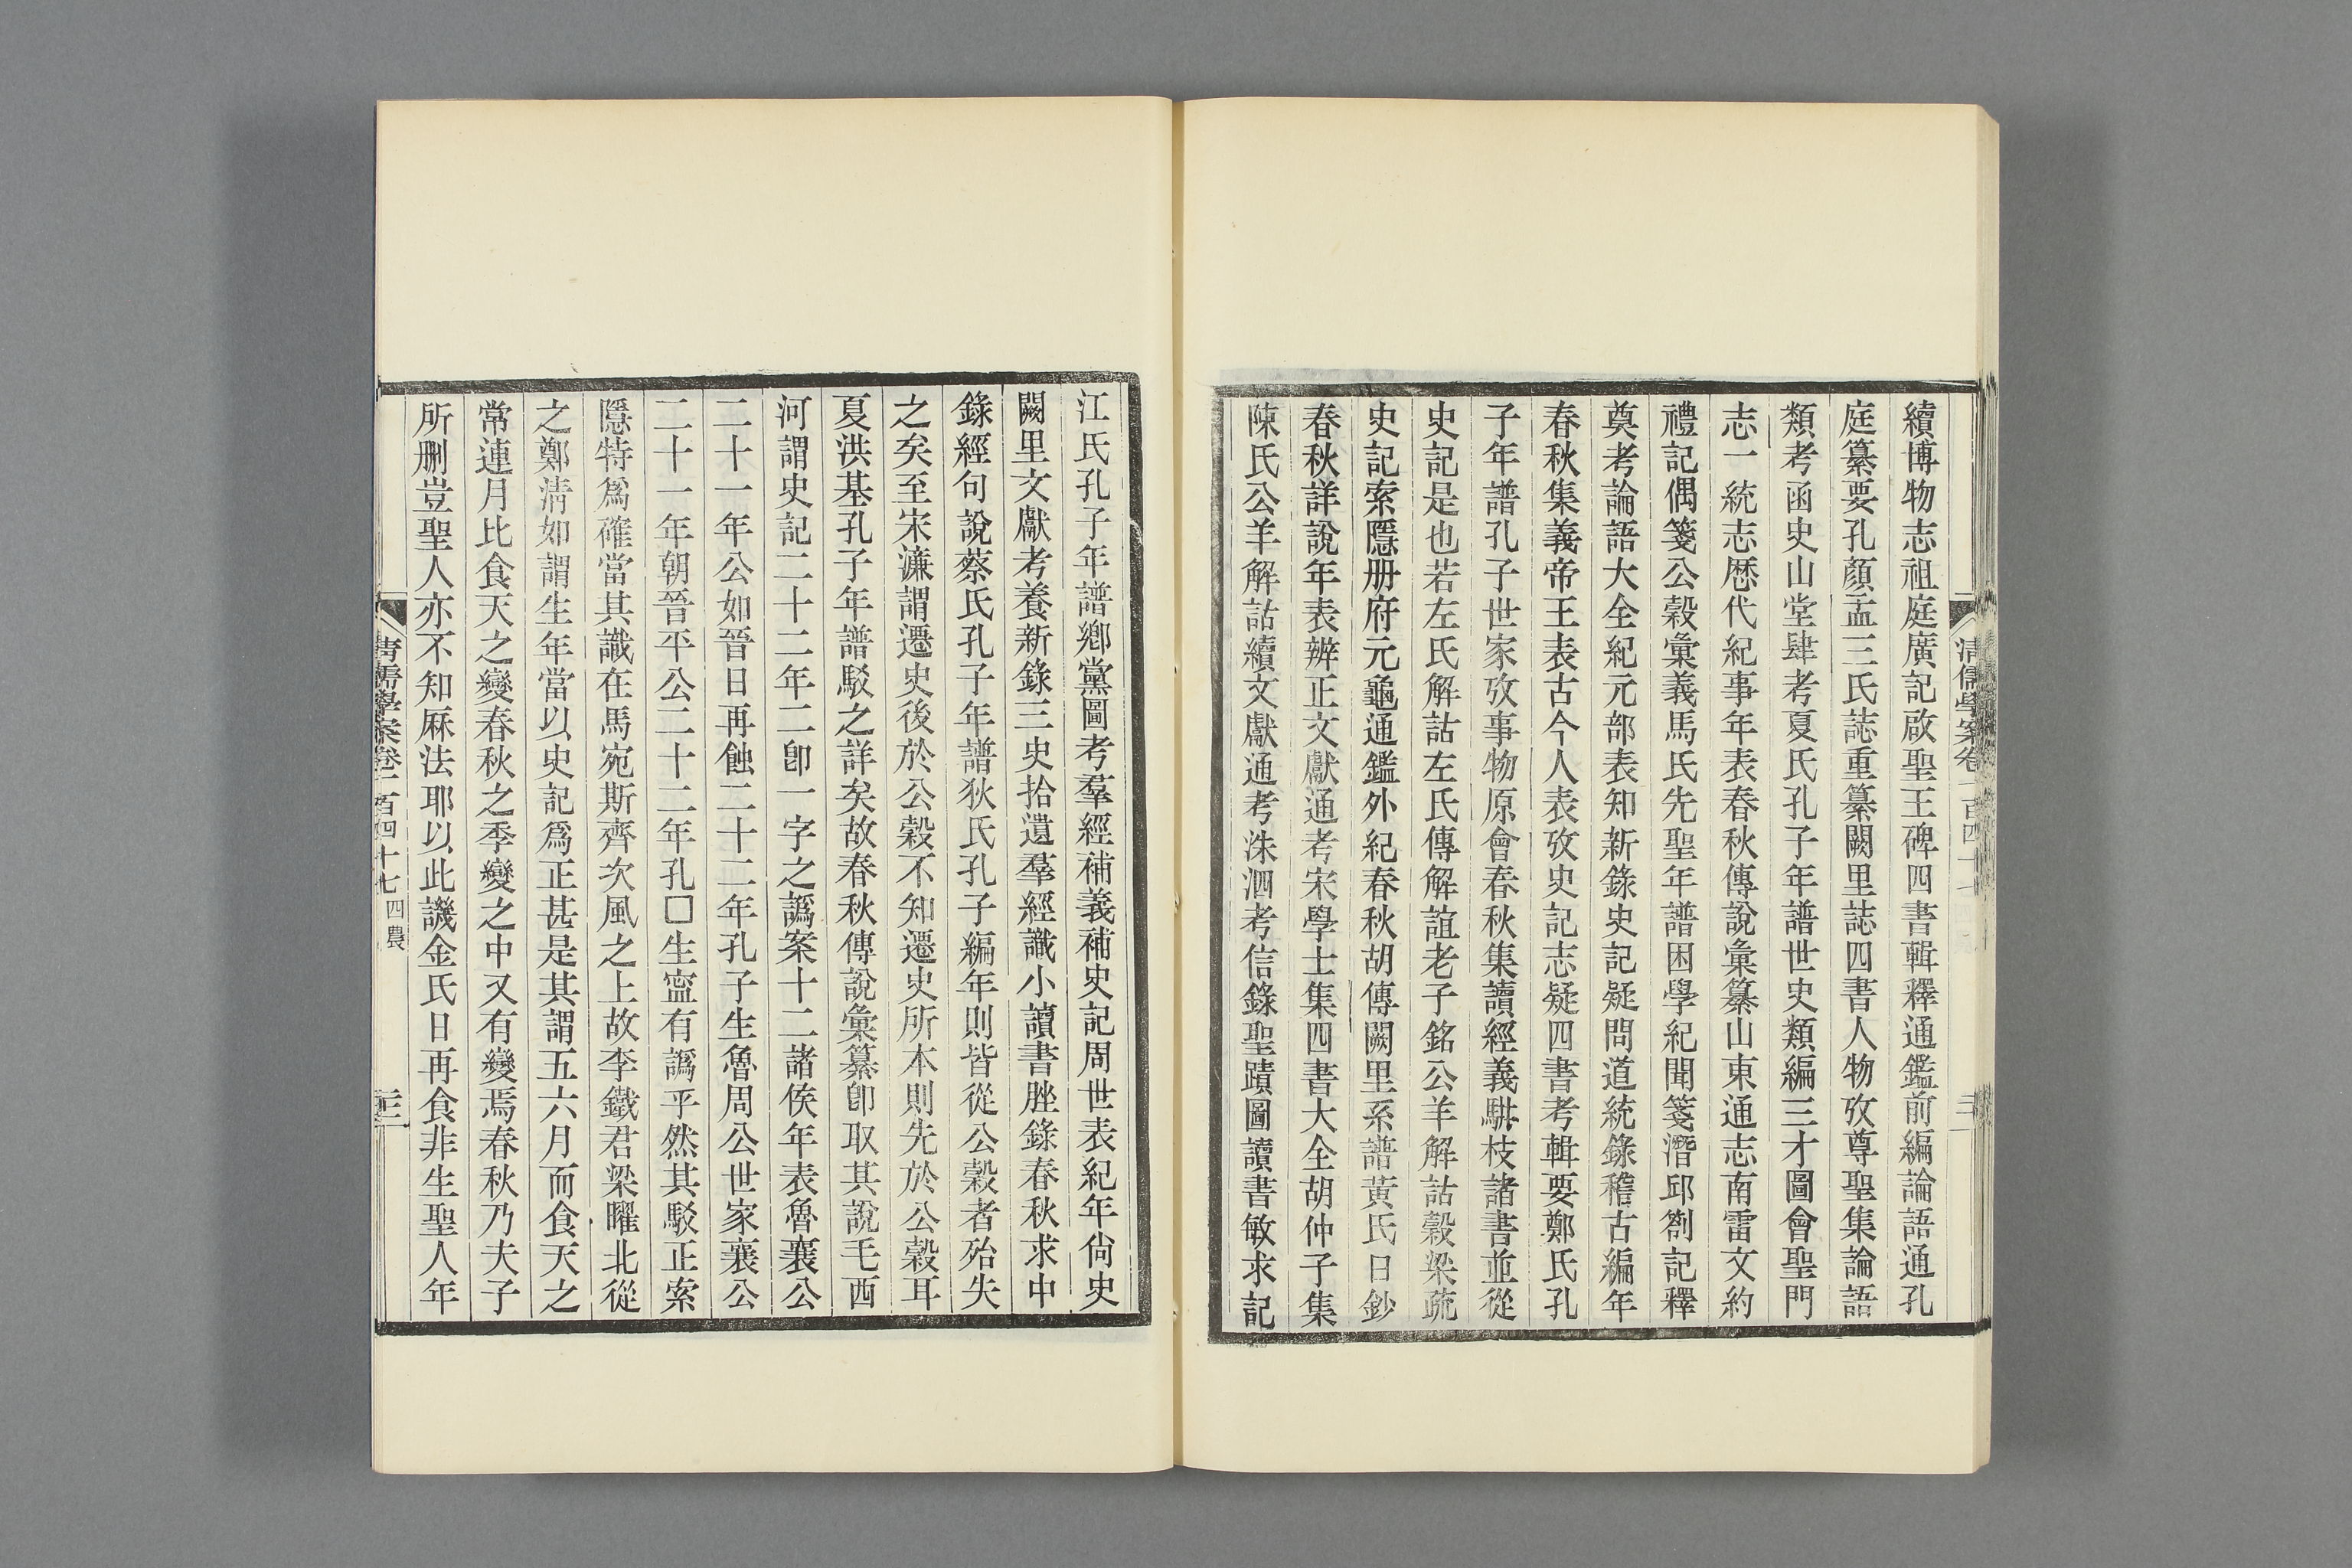 續博物志祖庭廣記啟聖王碑四書輯釋通鑑前編論語通孔
庭纂要孔顏孟三氏誌重纂闕里誌四書人物攷尊聖集論語
類考函史山堂肆考夏氏孔子年譜世史類編三才圖會聖門
志一統志歷代紀事年表春秋傳說彙纂山東通志南雷文約
禮記偶箋公穀彙義馬氏先聖年譜困學紀聞箋潛邱劄記釋
奠考論語大全紀元部表知新錄史記疑問道統錄稽古編年
春秋集義帝王表古今人表攷史記志疑四書考輯要鄭氏孔
子年譜孔子世家攷事物原會春秋集讀經義駢枝諸書並從
史記是也若左氏解詁左氏傳解誼老子銘公羊解詁穀梁疏
史記索隱册府元龜通鑑外紀春秋胡傳闕里系譜黃氏日鈔
春秋詳說年表辨正文獻通考宋學士集四書大全胡仲子集
陳氏公羊解詁續文獻通考洙泗考信錄聖蹟圖讀書敏求記
清儒學案卷一百四十七
三
江氏孔子年譜鄉黨圖考羣經補義補史記周世表紀年尙史
闕里文獻考養新錄三史拾遺羣經識小讀書脞錄春秋求中
錄經句說蔡氏孔子年譜狄氏孔子編年則皆從公穀者殆失
之矣至宋濂謂遷史後於公穀不知遷史所本則先於公穀耳
夏洪基孔子年譜駁之詳矣故春秋傳說彙纂卽取其說毛西
河謂史記二十二年二卽一字之譌案十二諸侯年表魯襄公
二十一年公如晉日再蝕二十二年孔子生魯周公世家襄公
二十一年朝晉平公二十二年孔□生寍有譌乎然其駁正索
隱特爲確當其識在馬宛斯齊次風之上故李鐵君梁曜北從
之鄭清如謂生年當以史記爲正甚是其謂五六月而食天之
常連月比食天之變春秋之季變之中又有變焉春秋乃夫子
所刪豈聖人亦不知厤法耶以此譏金氏日再食非生聖人年
清儒學案卷一百四十七 四農
三